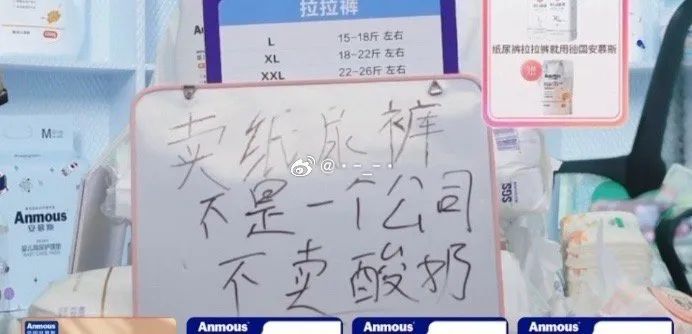 拉拉裤
L 15-18斤 左右
XL 18-22斤 左右
XXL 22-26斤 左右
纸尿裤拉拉裤就用德国安慕斯
赠
卖纸尿裤
不是一个公司
不卖酸奶
@·－_－·
M
Anmous
安慕斯
婴儿隔尿护理垫
BABY CARE PADS
SGS
Anmous
Anmous
Anmous
Anmous